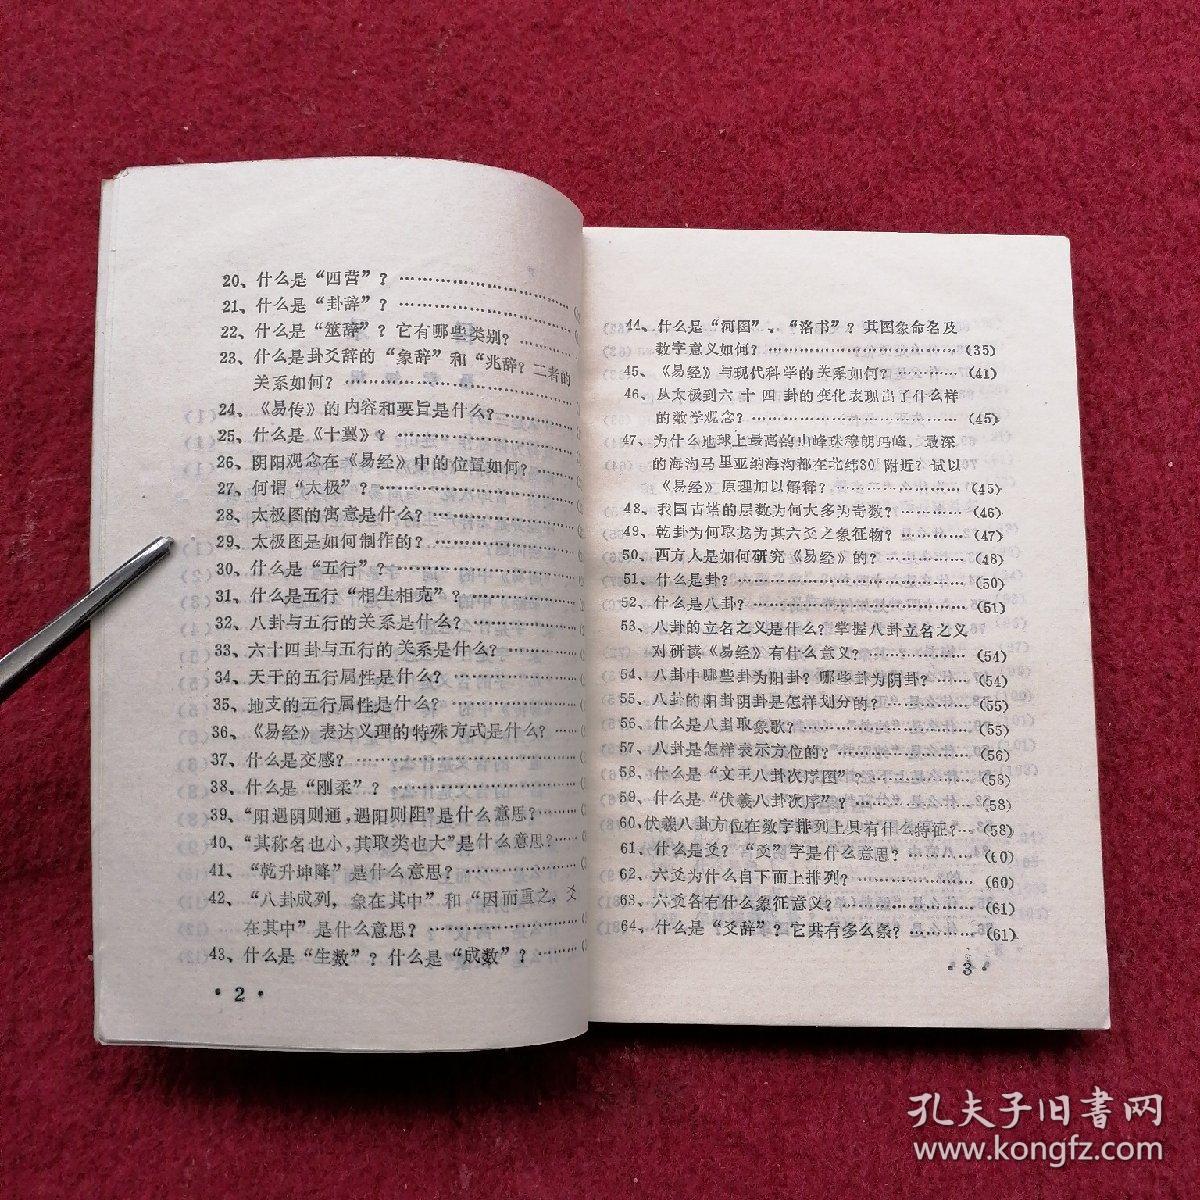 20、什么是“四营”？………………
21、什么是“卦辞”？………………
22、什么是“筮辞”？它有哪些类别？…………
23、什么是卦爻辞的“象辞”和“兆辞？二者的
关系如何？………………
24、《易传》的内容和要旨是什么？………
25、什么是《十翼》？………………
26、阴阳观念在《易经》中的位置如何？………
27、何谓“太极”？………………
28、太极图的寓意是什么？………………
29、太极图是如何制作的？………………
30、什么是“五行”？………………
31、什么是五行“相生相克”？………………
32、八卦与五行的关系是什么？…………
33、六十四卦与五行的关系是什么？…………
34、天干的五行属性是什么？…………
35、地支的五行属性是什么？…………
36、《易经》表达义理的特殊方式是什么？……
37、什么是交感？………………
38、什么是“刚柔”？………………
39、“阳遇阴则通，遇阳则阻”是什么意思？……
40、“其称名也小，其取类也大”是什么意思？
41、“乾升坤降”是什么意思？…………
42、“八卦成列，象在其中”和“因而重之，爻
在其中”是什么意思？…………
43、什么是“生数”？什么是“成数”？………
• 2 •
44、什么是“河图”、“洛书”？其图象命名及
数字意义如何？………………（35）
45、《易经》与现代科学的关系如何？………（41）
46、从太极到六十四卦的变化表现出了什么样
的数学观念？………………（45）
47、为什么地球上最高的山峰珠穆朗玛峰、最深
的海沟马里亚纳海沟都在北纬30°附近？试以
《易经》原理加以解释？…………（45）
48、我国古塔的层数为何大多为奇数？……（46）
49、乾卦为何取龙为其六爻之象征物？……（47）
50、西方人是如何研究《易经》的？………（48）
51、什么是卦？………………（50）
52、什么是八卦？………………（51）
53、八卦的立名之义是什么？掌握八卦立名之义
对研读《易经》有什么意义？…………（54）
54、八卦中哪些卦为阳卦？哪些卦为阴卦？……（54）
55、八卦的阳卦阴卦是怎样划分的？………（55）
56、什么是八卦取象歌？…………（55）
57、八卦是怎样表示方位的？…………（56）
58、什么是“文王八卦次序图”？…………（58）
59、什么是“伏羲八卦次序”？…………（58）
60、伏羲八卦方位在数字排列上具有什么特征？…（58）
61、什么是爻？“爻”字是什么意思？………（60）
62、六爻为什么自下而上排列？…………（60）
63、六爻各有什么象征意义？…………（61）
64、什么是“爻辞”？它共有多么条？………（61）
• 3 •
孔夫子旧書网
www.kongfz.com